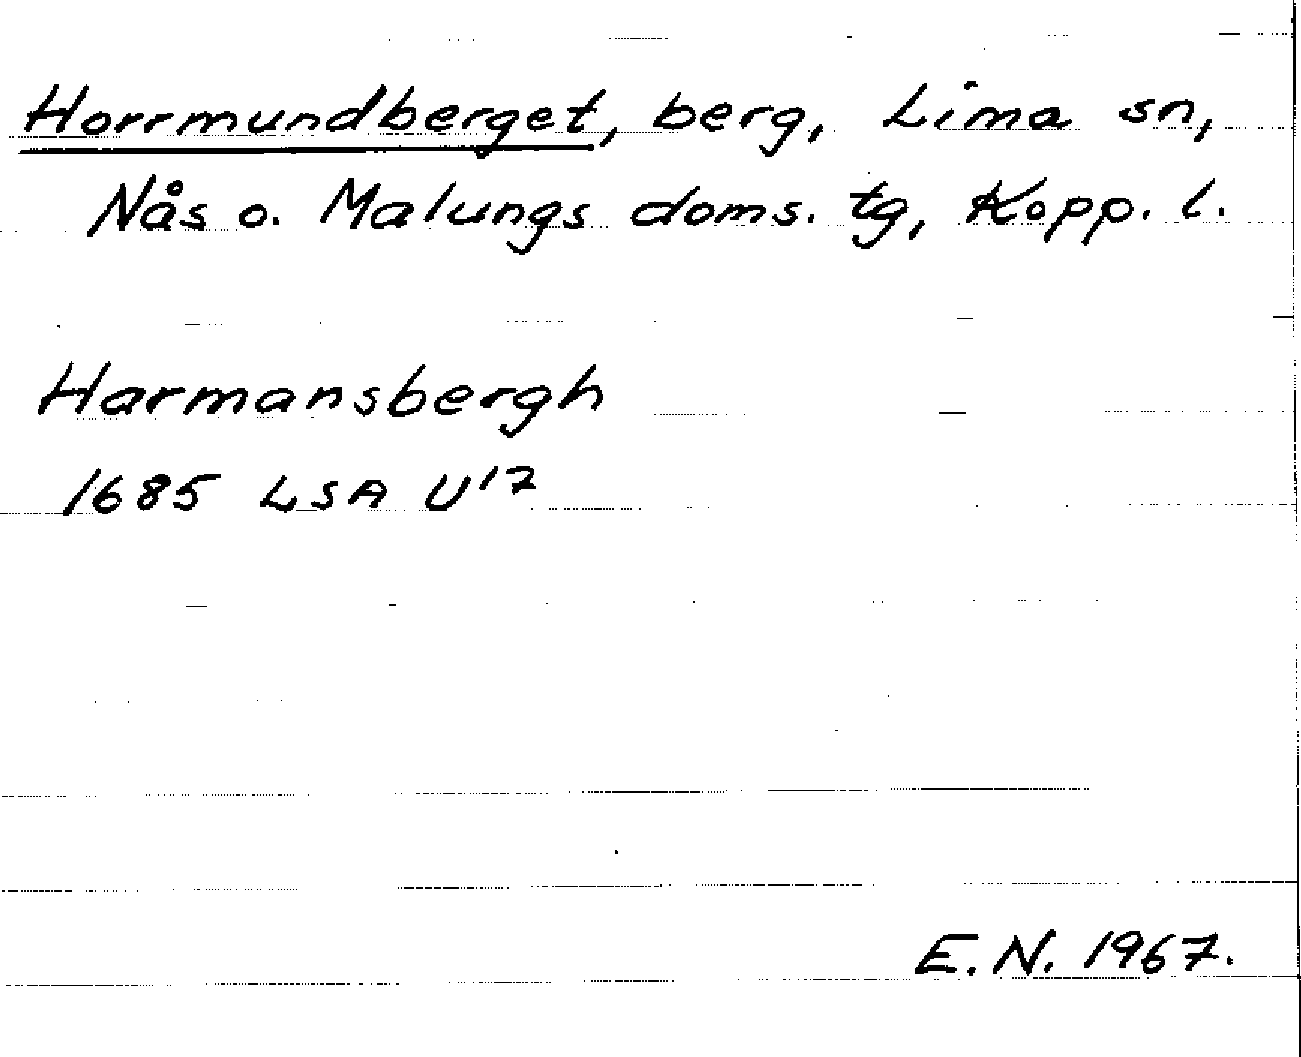 Horrmundberget, berg, Lima sn,
Nås o. Malungs doms. tg, Kopp. l.
Harmansbergh
1685 LSA U¹⁷
E. N. 1967.